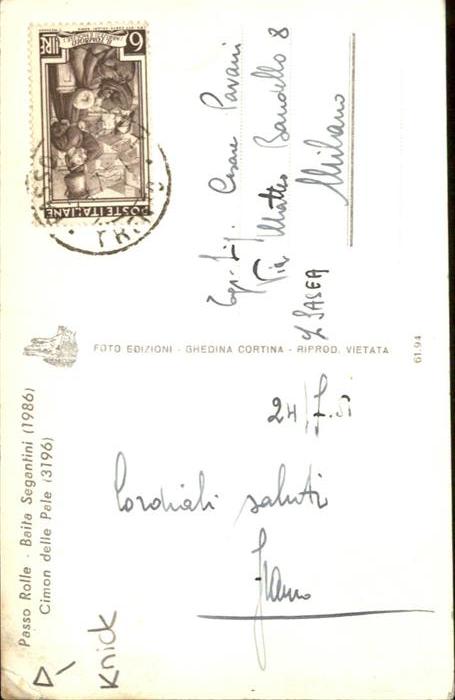 Passo Rolle - Baita Segantini (1986)
Cimon delle Pale (3196)
Knick
24/7.51
Cordiali saluti
FOTO EDIZIONI - GHEDINA CORTINA - RIPROD. VIETATA
61.94
6
LIRE
POSTE ITALIANE
Egr. Sig. Cesare Pavani
Via Matteo Bandello 8
℅ SASEA
Milano